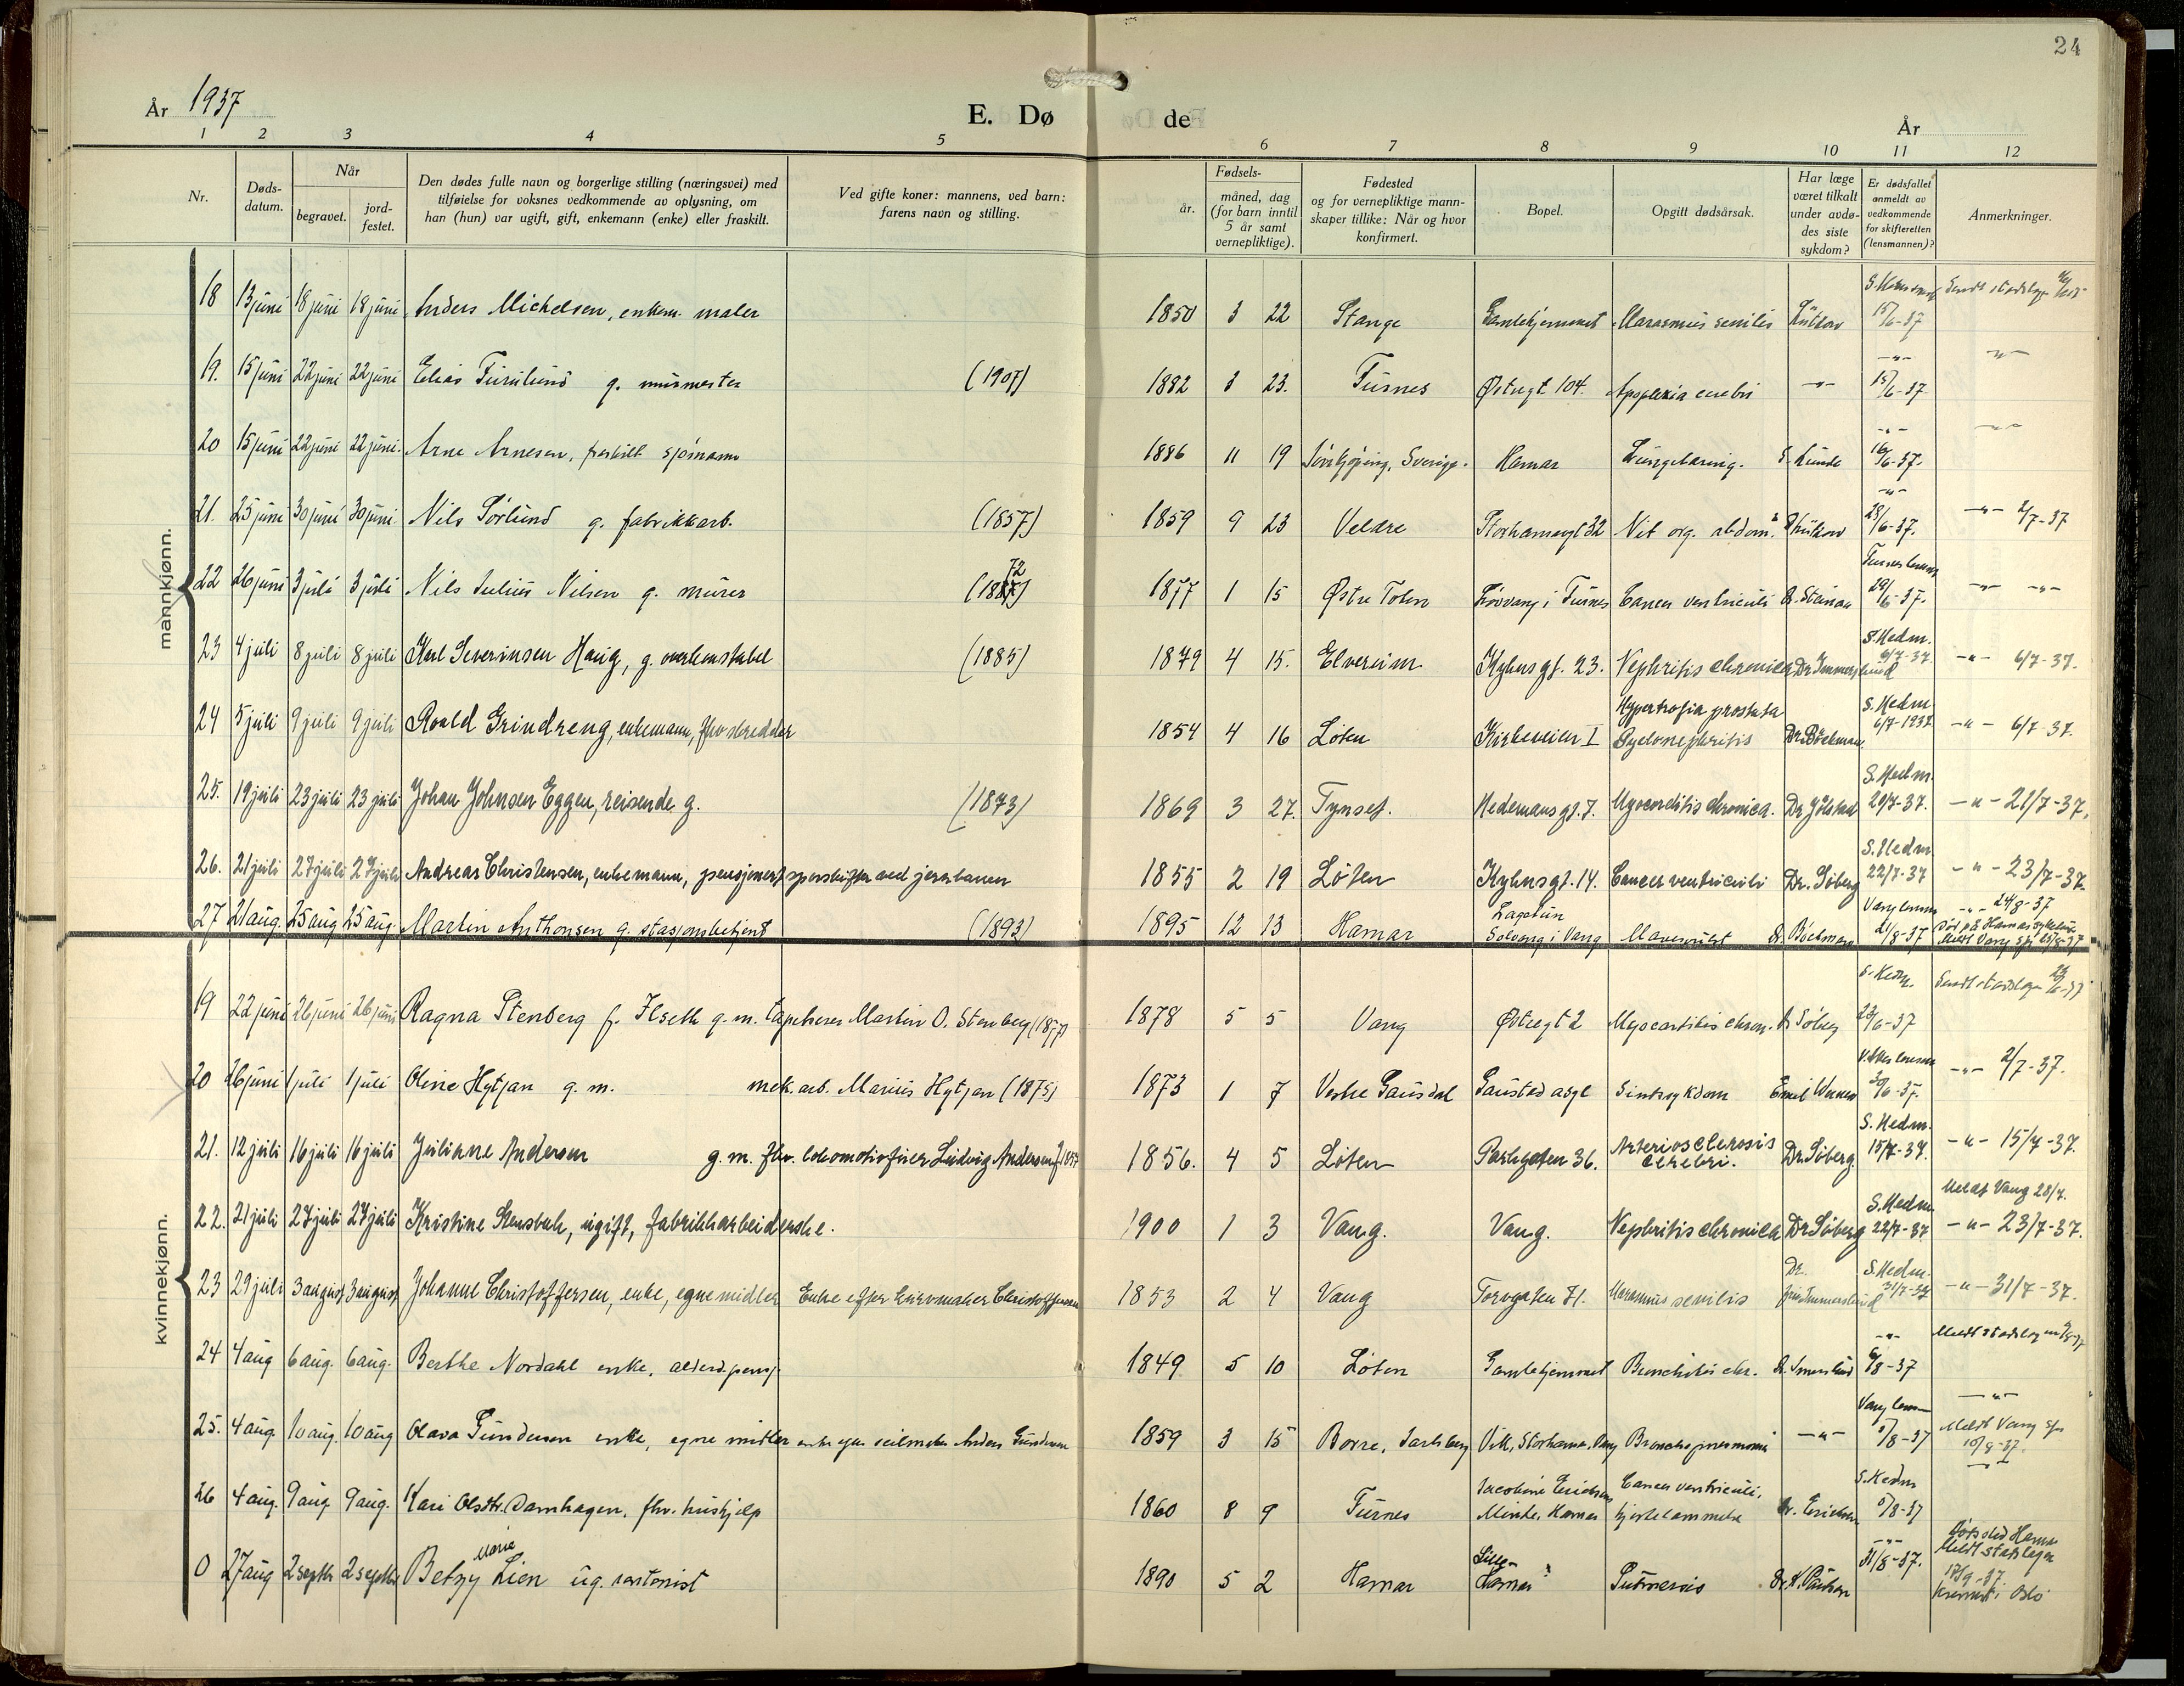 24
År 1937
E. Dø de
År
1 2 3 4 5 6 7 8 9 10 11 12
Nr.
Døds-datum.
Når
begravet.
jord-festet.
Den dødes fulle navn og borgerlige stilling (næringsvei) med tilføielse for voksnes vedkommende av oplysning, om han (hun) var ugift, gift, enkemann (enke) eller fraskilt.
Ved gifte koner: mannens, ved barn: farens navn og stilling.
Fødsels-
år.
måned, dag (for barn inntil 5 år samt vernepliktige).
Fødested og for vernepliktige mann-skaper tillike: Når og hvor konfirmert.
Bopel.
Opgitt dødsårsak.
Har læge været tilkalt under avdø-des siste sykdom?
Er dødsfallet anmeldt av vedkommende for skifteretten (lensmannen)?
Anmerkninger.
mannkjønn.
18 13 juni 18 juni 18 juni Anders Michelsen, enkem. maler 1850 3 22 Stange Gamlehjemmet Marasmus senilis 15/6-37
19. 15 juni 22 juni 22 juni Elias Furulund g. murmester (1907) 1882 3 23. Furnes Østregt. 104. Apoplexia cerebri -"- -"- 15/6-37 -"-
20 15 juni 22 juni 22 juni. Arne Arnesen, fraskilt sjømann 1886 11 19 Sverige. Hamar S. Lunde -"- 16/6-37. -"-
21. 25 juni 30 juni 30 juni. Nils Sørlund g. fabrikkarb. (1857) 1859 9 23 Veldre Storhamargt 32 -"- 28/6-37. -"- 2/7-37
22 26 juni 3 juli 3 juli Nils Julius Nilsen g. murer 1877 1 15 Østre Toten i Furnes Cancer ventriculi Furnes lensm 29/6-37. -"- -"-
23 4 juli 8 juli 8 juli Karl Severinsen Haug, g. overkonstabel (1885) 1879 4 15. Elverum Kyhns gt. 23. Nephritis chronica Dr Immerslund S. Hedm. 6/7-37. -"- 6/7-37.
24 5 juli 9 juli 9 juli Roald Grindreng, enkemann, fhv. skredder 1854 4 16 Løten Kirkeveien I Hypertrofia prostata Pyelonephritis Dr. Böckman S. Hedm 6/7-1937 -"- 6/7-37.
25. 19 juli 23 juli 23 juli Johan Johnsen Eggen, reisende g. (1873) 1869 3 27. Tynset. Hedemarsgt. 7. Myocarditis chronica. Dr Jølstad S. Hedm. 20/7-37. -"- 21/7-37.
26. 21 juli 27 juli 27 juli Andreas Christensen, enkemann, pensjonert sporskifter ved jernbanen 1855 2 19 Løten Kyhnsgt. 14. Cancer ventriculi Dr. Söberg S. Hedm 22/7-37 -"- 23/7-37.
27 21 aug. 25 aug 25 aug. Martin Anthonsen g. stasjonsbetjent (1893) 1895 12 13 Hamar Lagetun Solvang i Vang Dr. Böckman Vang lensm 21/8-37 -"- 24/8-37
kvinnekjønn.
19 22 juni 26 juni 26 juni Ragna Stenberg f. Ilseth g.m. tapetserer Martin O. Stenberg (1857) 1878 5 5 Vang Østregt 2 Myocarditis chron. Dr Söberg S. Hedm. 23/6-37
20 26 juni 1 juli 1 juli Oline Hytjan g.m. mek. arb. Marius Hytjan (1875) 1873 1 7 Vestre Gausdal Gaustad asyl Sindssykdom -"- 2/7-37.
21. 12 juli 16 juli 16 juli Juliane Andersen g.m. fhv. lokomotivfører Ludvig Andersen 1856. 4 5 Løten Parkgaten 36. Arteriosclerosis cerebri. Dr. Söberg. S. Hedm. 15/7-37. -"- 15/7-37.
22. 21 juli 27 juli 27 juli Kristine Stensbak, ugift, fabrikkarbeiderske. 1900 1 3 Vang. Vang. Nephritis chronica Dr Söberg S. Hedm. 22/7-37 Meldt Vang 28/7. -"- 23/7-37.
23 29 juli 3 august 3 august Johanne Christoffersen, enke, egne midler Enke efter kurvmaker Christoffersen 1853 2 4 Vang Torvgaten 71. Marasmus senilis Dr. Immerslund S. Hedm. 31/7-37 -"- 31/7-37.
24 4 aug 6 aug. 6 aug. Berthe Nordahl enke, alderd.pensj. 1849 5 10 Løten Gamlehjemmet Bronchitis chr. -"- 6/8-37
25. 4 aug. 10 aug. 10 aug Olava Gundersen enke, egne midler enke efter seilmaker Anders Gundersen 1859 3 15 Borre, Jarlsberg Bronchopneumoni -"- Vang lensm 5/8-37 -"- Meldt Vang 10/8-37.
26 4 aug. 9 aug. 9 aug. Kari Olsdtr. Damhagen, fhv. hushjelp 1860 8 9 Furnes Minde, Hamar Cancer ventriculi, hjertelammelse Dr. Erichsen S. Hedm 5/8-37
0 27 aug 2 septbr 2 septbr Betzy Marie Lien ug. kontorist 1890 5 2 Hamar -"- 31/8-37. kremert i Oslo